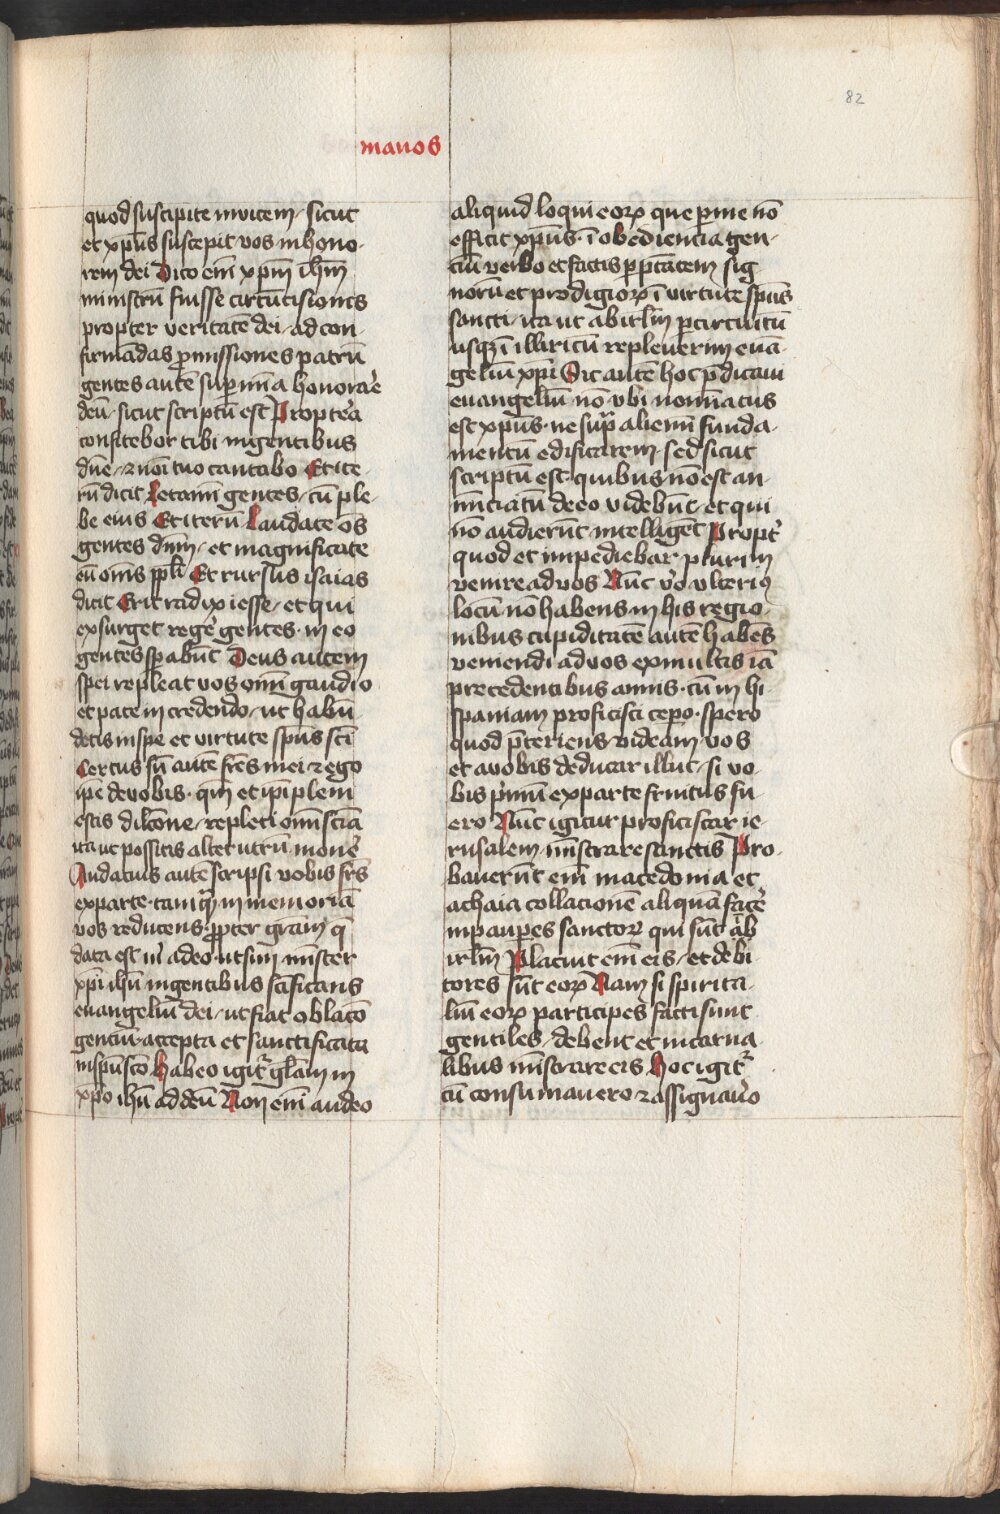 82
manos
quod suscipite invicem / sicut
et xp̄us suscepit vos in hono-
rem dei Dico em̄ xp̄m ih̄m
ministrū fuisse circūcisionis
propter veritatē dei / ad con-
firmādas p̄missiones patrū
gentes autē sup mīa honorar̄e
deū · sicut scriptū est Propter̄a
confitebor tibi in gentibus
dn̄e / ⁊ noī tuo cantabo Et ite-
rū dicit Letami gentes / cū ple-
be eius Et iterū Laudate om̄s
gentes dn̄m / et magnificate
eū om̄s ppl̄i Et rursus isaias
dicit Erit radix iesse / et qui
exsurget reger̄e gentes · in eo
gentes sp̄abūt Deus autem
spei repleat vos om̄i gaudio
et pace in credendo / ut habū-
detis in spe et virtute spūs scī
Certus sū autē fr̄es mei ⁊ ego
ip̄e de vobis · qm̄ et ip̄i pleni
estis dilc̄one / repleti om̄i sciā
ita ut possitis alterutrū moner̄e
Audacius autē scripsi vobis fr̄s
ex parte · tamq̄ in memoriā
vos reducens · ꝓpter grām q̄
data est m̄ a deo · ut sim mīster
xp̄i ih̄u in gentibus sc̄ificans
evangeliū dei / ut fiat oblac̄o
genciū · accepta et sanctificata
in spū sc̄o Habeo igit̄ gl̄am in
xp̄o ih̄u ad deū Non em̄ audeo
aliquid loqui eoꝝ que p̱ me nō
efficit xp̄us · ī obedienciā gen-
ciū verbo et factis
norū et prodigioꝝ ī virtute spūs
sancti / ita ut ab irl̄m p̱ circuitū
usqꝫ ī illiricū repleverim evā-
geliū xp̄i Sic autē hoc p̄dicavi
evangeliū · nō vbi nomiatus
est xp̄us · ne sup̄ alienū funda-
mentū edificarem / sed sicut
scriptū est · quibus nō est an-
nūciatū de eo videbūt / et qui
nō audierūt · intelligēt Propt̄
quod et impediebar plurimū
venire ad vos Nūc v̄o vlteriꝰ
locū nō habens in his regio-
nibus cupiditatē autē habēs
veniendi ad vos ex multis iā
precedentibus annis · cū in hi-
spaniam proficisci cep̱o · spero
quod p̄teriens videam vos
et a vobis deducar illuc / si vo-
bis p̄mū ex parte fruitus fu-
ero Nūc igitur proficiscar ie-
rusalem · mīstrare sanctis Pro-
baverūt em̄ macedonia et
achaia collacionē aliquā facer̄e
in paup̱es sanctoꝝ qui sūt ab
irl̄m Placuit em̄ eis / et debi-
tores sūt eoꝝ Nam si spirita-
liū eoꝝ participes facti sunt
gentiles / debent et in carna-
libus mīstrare eis Hoc igit̄
cū consumavero ⁊ assignav̄o